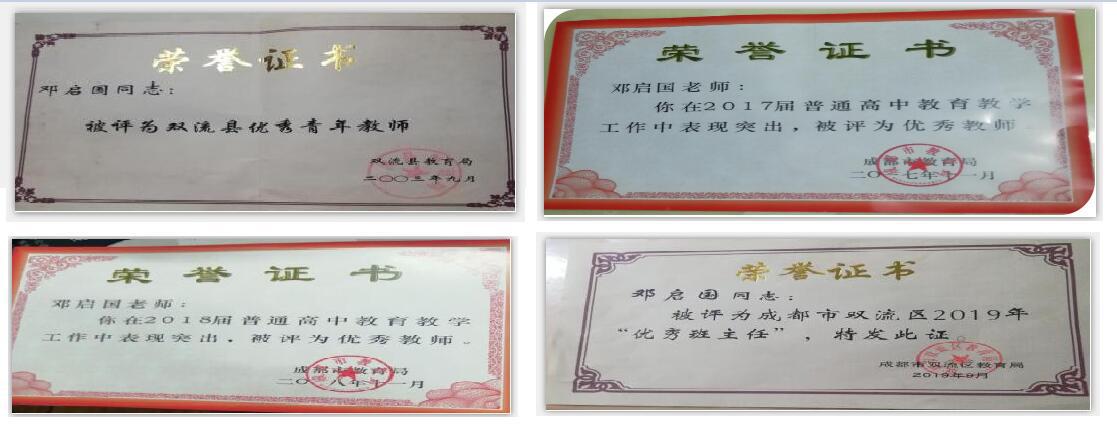 荣誉证书
邓启国同志：
被评为双流县优秀青年教师
双流县教育局
二〇〇三年九月
荣誉证书
邓启国老师：
你在2017届普通高中教育教学
工作中表现突出，被评为优秀教师。
成都市教育局
二〇一七年十一月
荣誉证书
邓启国老师：
你在2018届普通高中教育教学
工作中表现突出，被评为优秀教师。
成都市教育局
二〇一八年十一月
荣誉证书
邓启国同志：
被评为成都市双流区2019年
“优秀班主任”，特发此证
成都市双流区教育局
2019年9月